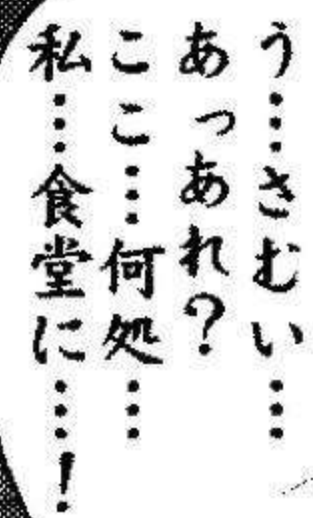 う…さむい…
あっあれ？
ここ…何処…
私…食堂に…！